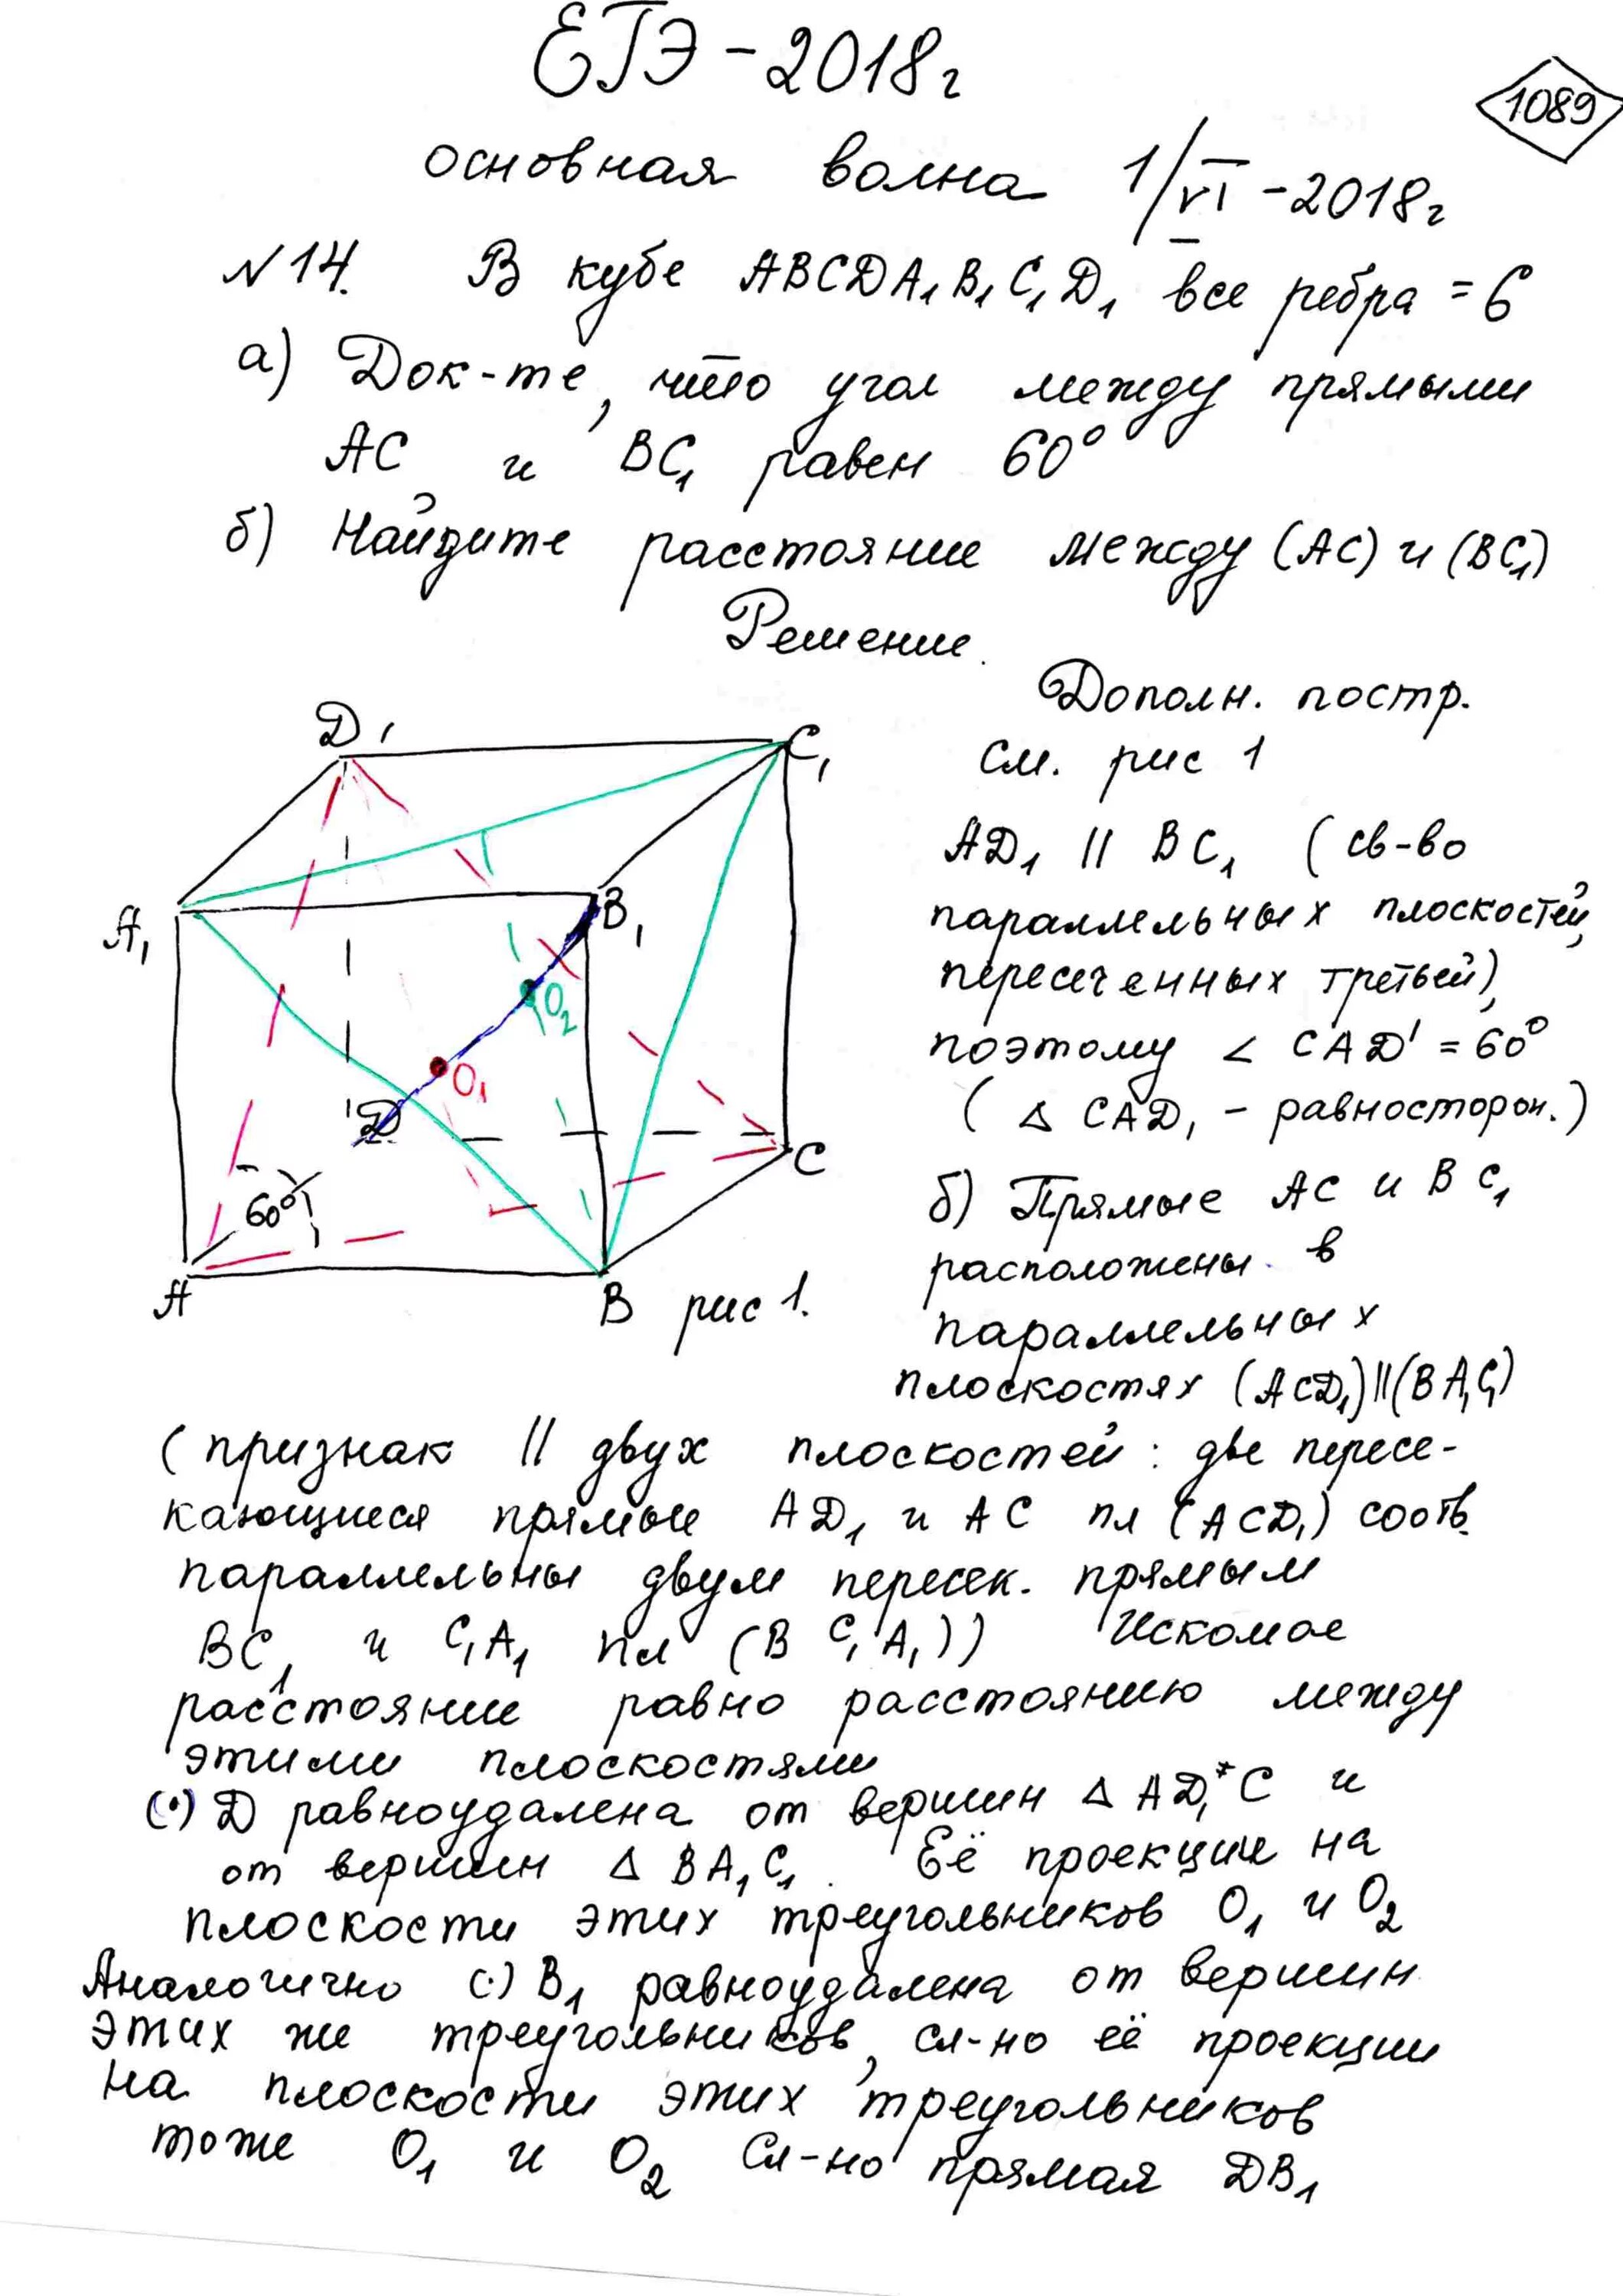 ЕГЭ-2018г
1089
основная волна 1/VI-2018г
N14. В кубе ABCDA₁B₁C₁D₁ все ребра = 6
а) Док-те, что угол между прямыми
AC и BC₁ равен 60°
б) Найдите расстояние между (AC) и (BC₁)
Решение.
Дополн. постр.
См. рис 1
AD₁ || BC₁ (св-во
параллельных плоскостей,
пересеченных третьей),
поэтому ∠ CAD' = 60°
(△ CAD₁ - равносторон.)
б) Прямые AC и BC₁
расположены в
параллельных
плоскостях (ACD₁)||(BA₁C₁)
D₁
C₁
A₁
B₁
O₂
O₁
D
C
60°
A
B
рис 1.
(признак || двух плоскостей: две пересе-
кающиеся прямые AD₁ и AC пл (ACD₁) соотв.
параллельны двум пересек. прямым
BC₁ и C₁A₁ пл (BC₁A₁)) Искомое
расстояние равно расстоянию между
этими плоскостями
(•) D равноудалена от вершин △ AD₁*C и
от вершин △ BA₁C₁. Её проекции на
плоскости этих треугольников O₁ и O₂
Аналогично (•) B₁ равноудалена от вершин
этих же треугольников, сл-но её проекции
на плоскости этих треугольников
тоже O₁ и O₂ Сл-но прямая DB₁